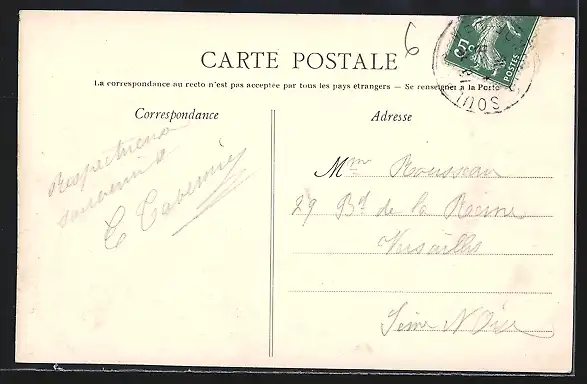 6
5c
POSTES
CARTE POSTALE
La correspondance au recto n'est pas acceptée par tous les pays étrangers — Se renseigner à la Poste
Correspondance
Adresse
Respectueux
souvenirs
Mme Rousseau
29 Bd de la Reine
Versailles
Seine